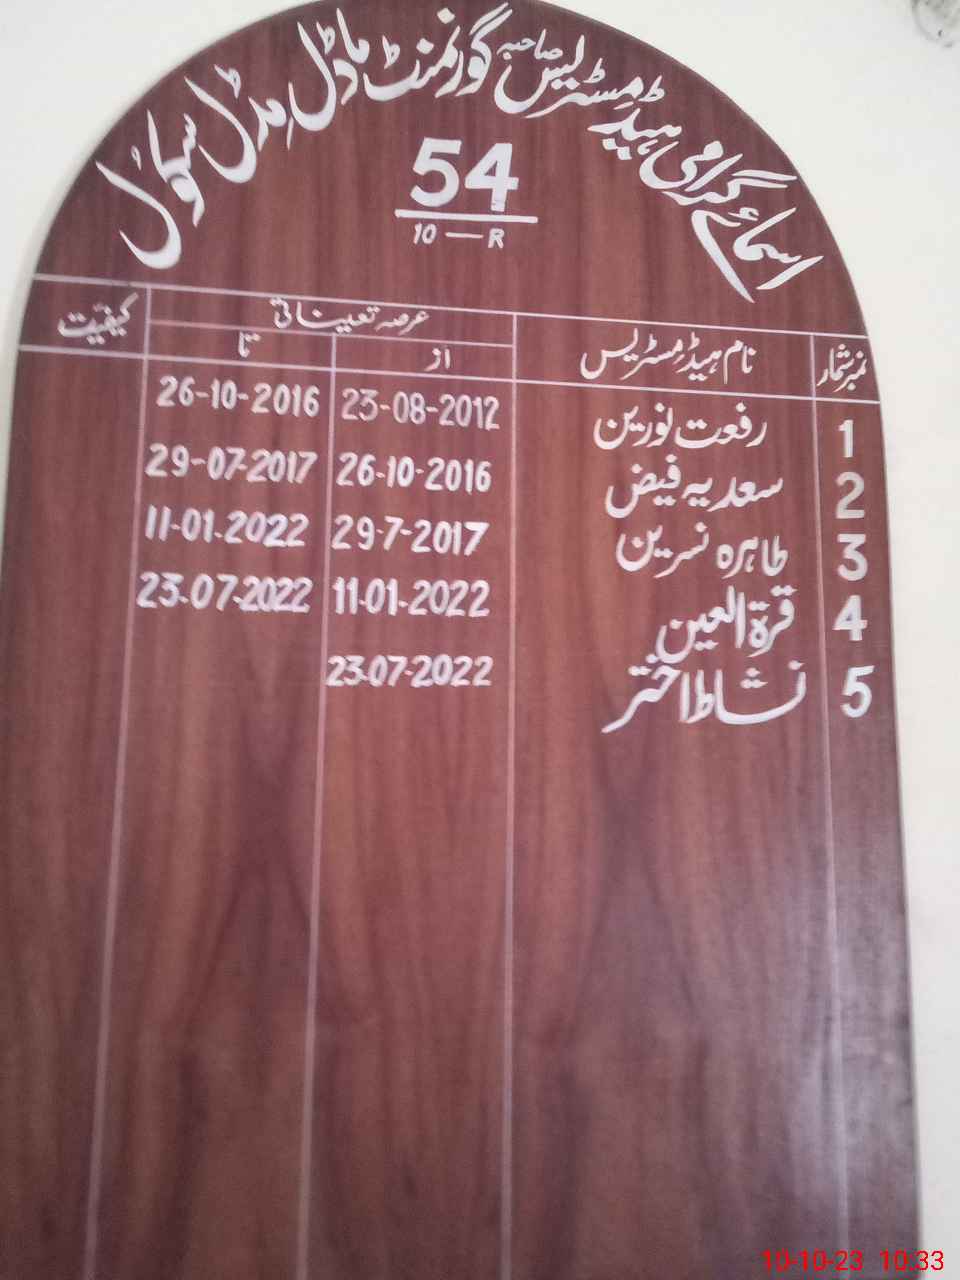 اسمائے گرامی ہیڈ مسٹریس صاحبہ گورنمنٹ ماڈل مڈل سکول
54
10 — R
نمبر شمار نام ہیڈ مسٹریس عرصہ تعیناتی کیفیت
از تا
1 رفعت نورین 23-08-2012 26-10-2016
2 سعدیہ فیض 26-10-2016 29-07-2017
3 طاہرہ نسرین 29-7-2017 11-01.2022
4 قرۃ العین 11-01-2022 23.07-2022
5 نشاط اختر 23-07-2022
10-10-23 10:33